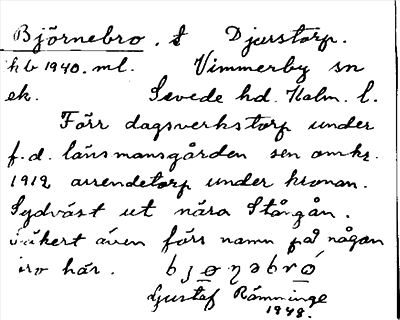 Björnebro. t Djurstorp.
hb 1940. ml. Vimmerby sn
ek. Sevede hd. Kalm. l.
Förr dagsverkstorp under
f.d. länsmansgården sen omkr.
1912 arrendetorp under kronan.
Sydväst ut nära Stångån.
Säkert även förr namn på någon
bro här. bjɵŋəbró
Gustaf Rämninge
1948.